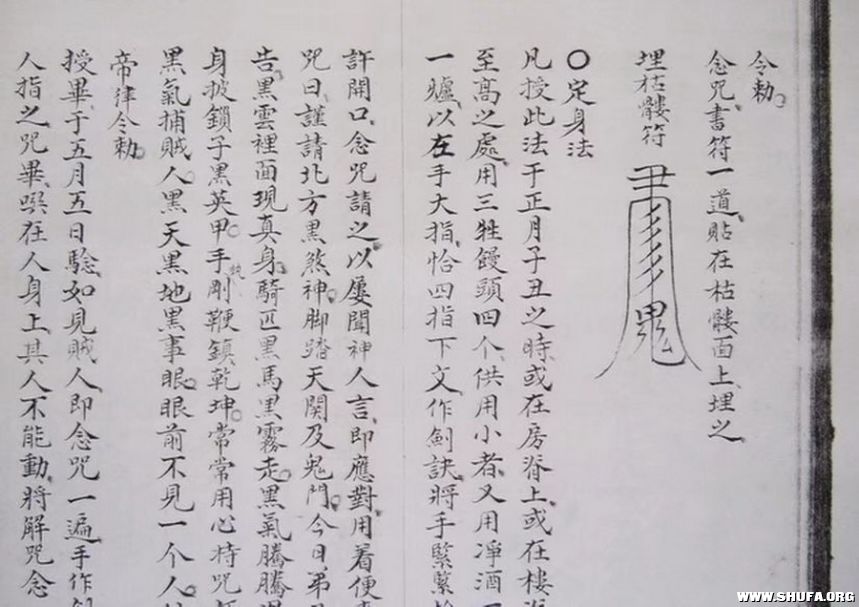 令勅
念咒書符一道貼在枯髏面上埋之
埋枯髏符
鬼
〇定身法
凡授此法于正月子丑之時或在房脊上或在樓
至髙之處用三牲饅頭四个供用小者又用凈酒一
一爐以在手大指恰四指下文作劍訣將手緊緊
許開口念咒請之以屡聞神人言即應對用着便
咒曰謹請北方黑煞神脚踏天関及鬼門今日弟
告黑雲裡面現真身騎匹黑馬黑霧走黑氣騰騰
身披鎖子黑英甲手執剛鞭鎖乾坤常常用心持咒
黑氣捕賊人黑天黑地黑事眼眼前不見一个人
帝律令勅
授畢于五月五日驗如見賊人即念咒一遍手作劍
人指之咒畢噀在人身上其人不能動將解咒念
WWW.SHUFA.ORG